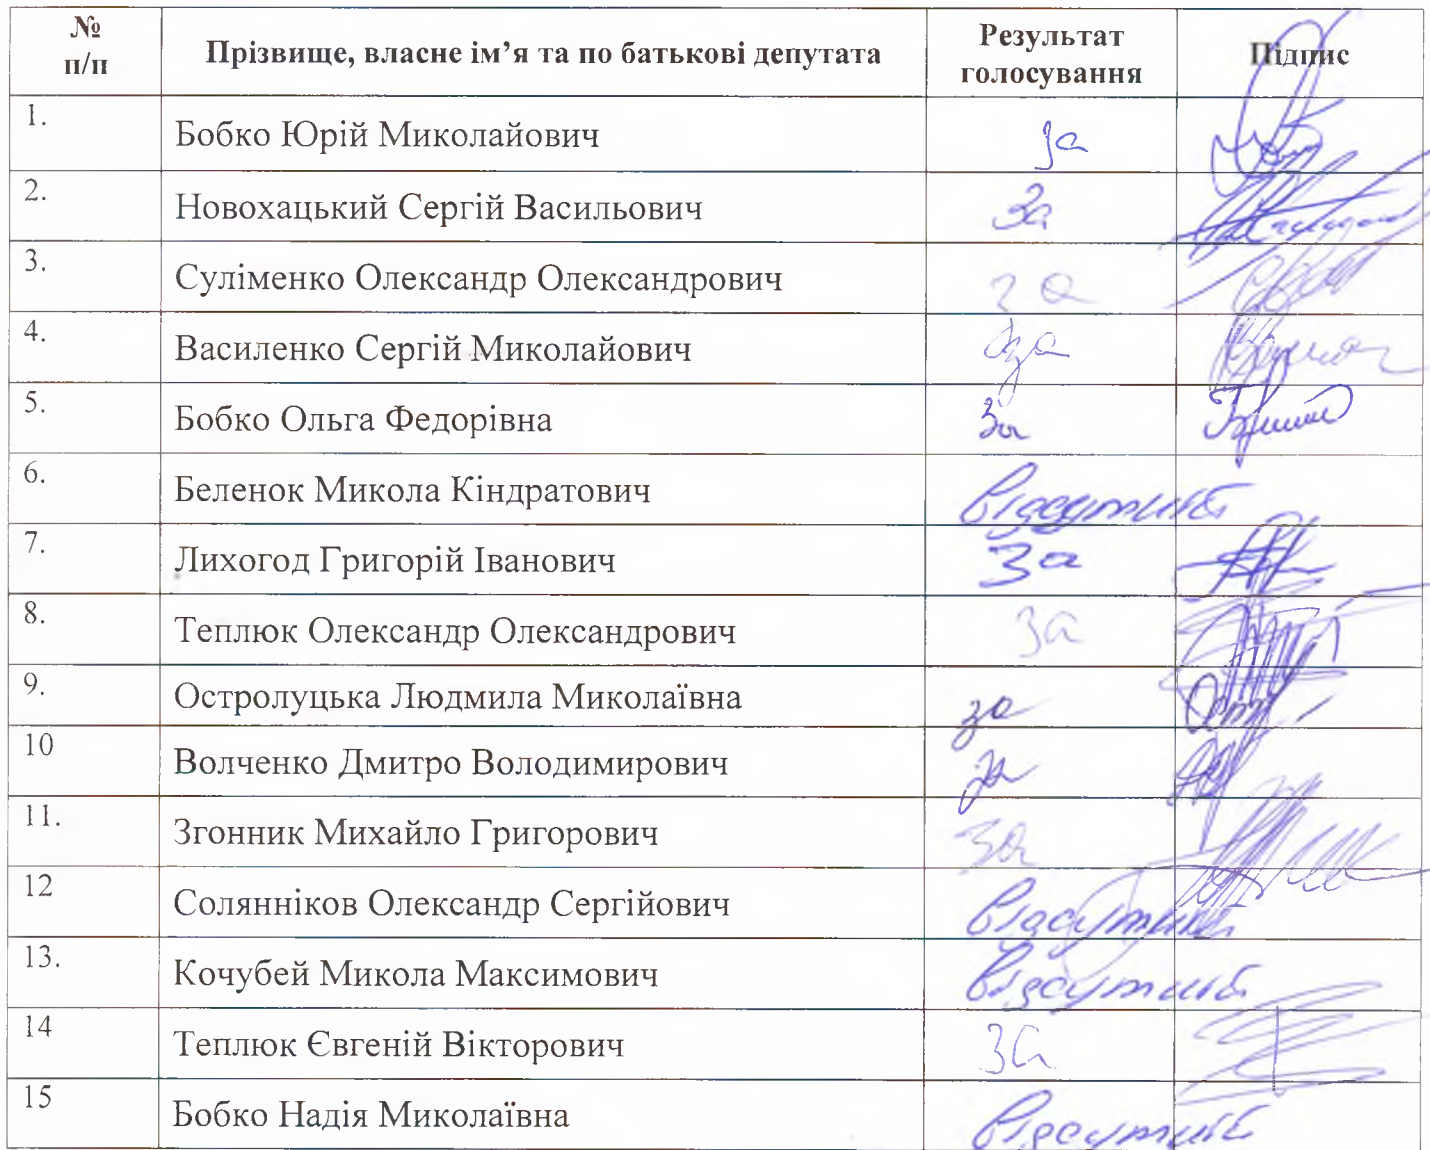 № п/п Прізвище, власне ім’я та по батькові депутата Результат голосування Підпис
1. Бобко Юрій Миколайович за
2. Новохацький Сергій Васильович За
3. Суліменко Олександр Олександрович за
4. Василенко Сергій Миколайович за
5. Бобко Ольга Федорівна За
6. Беленок Микола Кіндратович відсутній
7. Лихогод Григорій Іванович За
8. Теплюк Олександр Олександрович За
9. Остролуцька Людмила Миколаївна за
10 Волченко Дмитро Володимирович за
11. Згонник Михайло Григорович За
12 Солянніков Олександр Сергійович відсутній
13. Кочубей Микола Максимович відсутній
14 Теплюк Євгеній Вікторович За
15 Бобко Надія Миколаївна відсутній